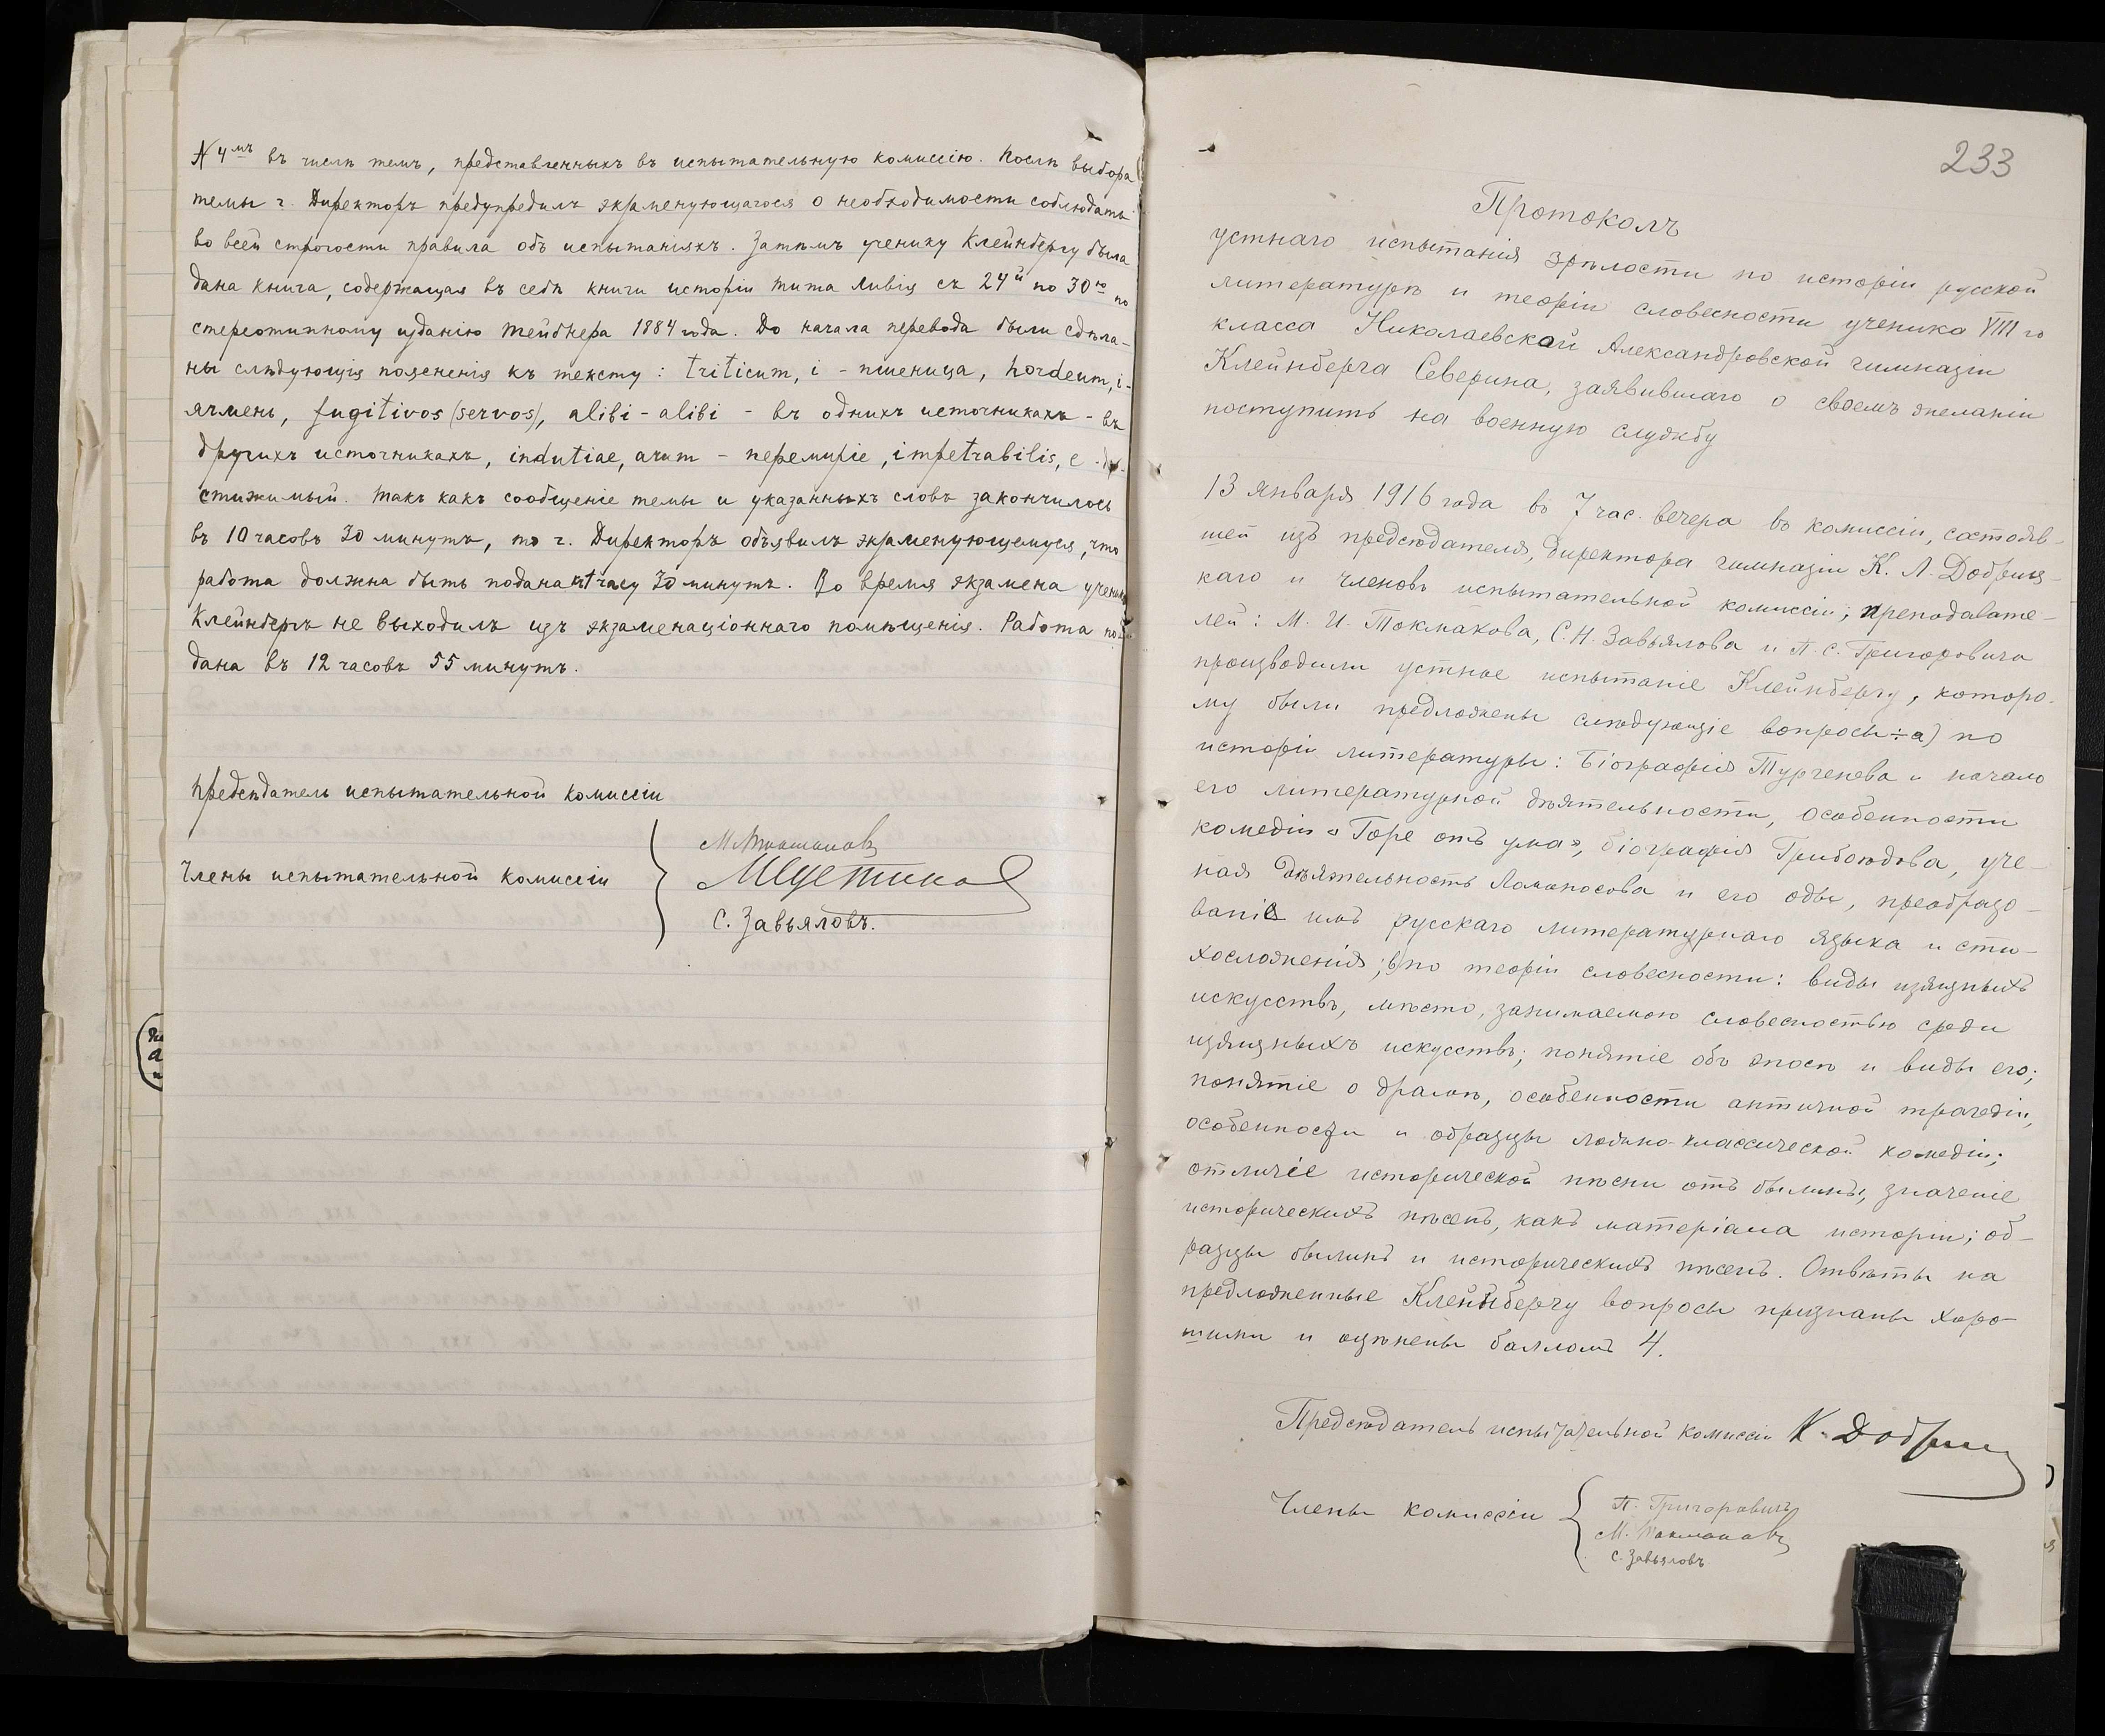 N 4мъ въ числѣ темъ, представленныхъ въ испытательную комиссію. Послѣ выбора
темы г. Директоръ предупредилъ экзаменующагося о необходимости соблюдать
во всей строгости правила объ испытаніяхъ. Затѣмъ ученику Клейнбергу была
дана книга, содержащая въ себѣ книги исторіи Тита Ливія съ 24й по 30ю по
стереотипному изданію Тейбнера 1884 года. До начала перевода были сдѣла-
ны слѣдующія поясненія къ тексту: triticum, i - пшеница, hordeum, i -
ячмень, fugitivos (servos), alibi - alibi - въ однихъ источникахъ - въ
другихъ источникахъ, indutiae, arum - перемиріе, impetrabilis, e -
стижимый. Такъ какъ сообщеніе темы и указанныхъ словъ закончилось
въ 10 часовъ 30 минутъ, то г. Директоръ объявилъ экзаменующемуся, что
работа должна быть подана къ 1 часу 30 минутъ. Во время экзамена ученикъ
Клейнбергъ не выходилъ изъ экзаменаціоннаго помѣщенія. Работа по-
дана въ 12 часовъ 55 минутъ.
Предсѣдатель испытательной комиссіи
М. Токмаковъ
Члены испытательной комиссіи
С. Завьяловъ.
233
Протоколъ
устнаго испытанія зрѣлости по исторіи русской
литературѣ и теоріи словесности ученика VIII го
класса Николаевской Александровской гимназіи
Клейнберга Северина, заявившаго о своемъ желаніи
поступить на военную службу
13 января 1916 года въ 7 час. вечера въ комиссіи, состояв-
шей изъ предсѣдателя, директора гимназіи К. Л. Добриц-
каго и членовъ испытательной комиссіи; преподавате-
лей: М. И. Токмакова, С. Н. Завьялова и П. С. Григоровича
производили устное испытаніе Клейнбергу, которо-
му были предложены слѣдующіе вопросы: а) по
исторіи литературы: Біографія Тургенева и начало
его литературной дѣятельности, особенности
комедіи «Горе отъ ума», біографія Грибоѣдова, уче-
ная дѣятельность Ломоносова и его оды, преобразо-
ваніе имъ русскаго литературнаго языка и сти-
хосложенія; б) по теоріи словесности: виды изящныхъ
искусствъ, мѣсто, занимаемою словесностью среди
изящныхъ искусствъ; понятіе объ эпосѣ и виды его;
понятіе о драмѣ, особенности античной трагедіи,
особенности и образцы ложно-классической комедіи;
отличіе исторической пѣсни отъ былины, значеніе
историческихъ пѣсенъ, какъ матеріала исторіи; об-
разцы былинъ и историческихъ пѣсенъ. Отвѣты на
предложенные Клейнбергу вопросы признаны хоро-
шими и оцѣнены балломъ 4.
Предсѣдатель испытательной комиссіи К. Добриц
Члены комиссіи
П. Григоровичъ
М. Токмаковъ
С. Завьяловъ